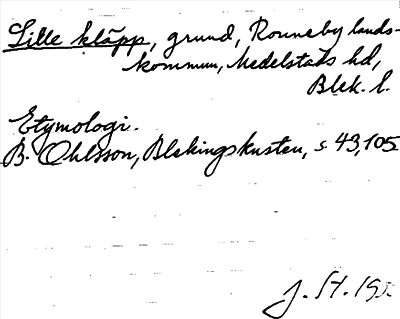 Lille kläpp, grund, Ronneby lands-
kommun, Medelstads hd,
Blek. l.
Etymologi.
B. Ohlsson, Blekingskusten, s. 43, 105
J. St.